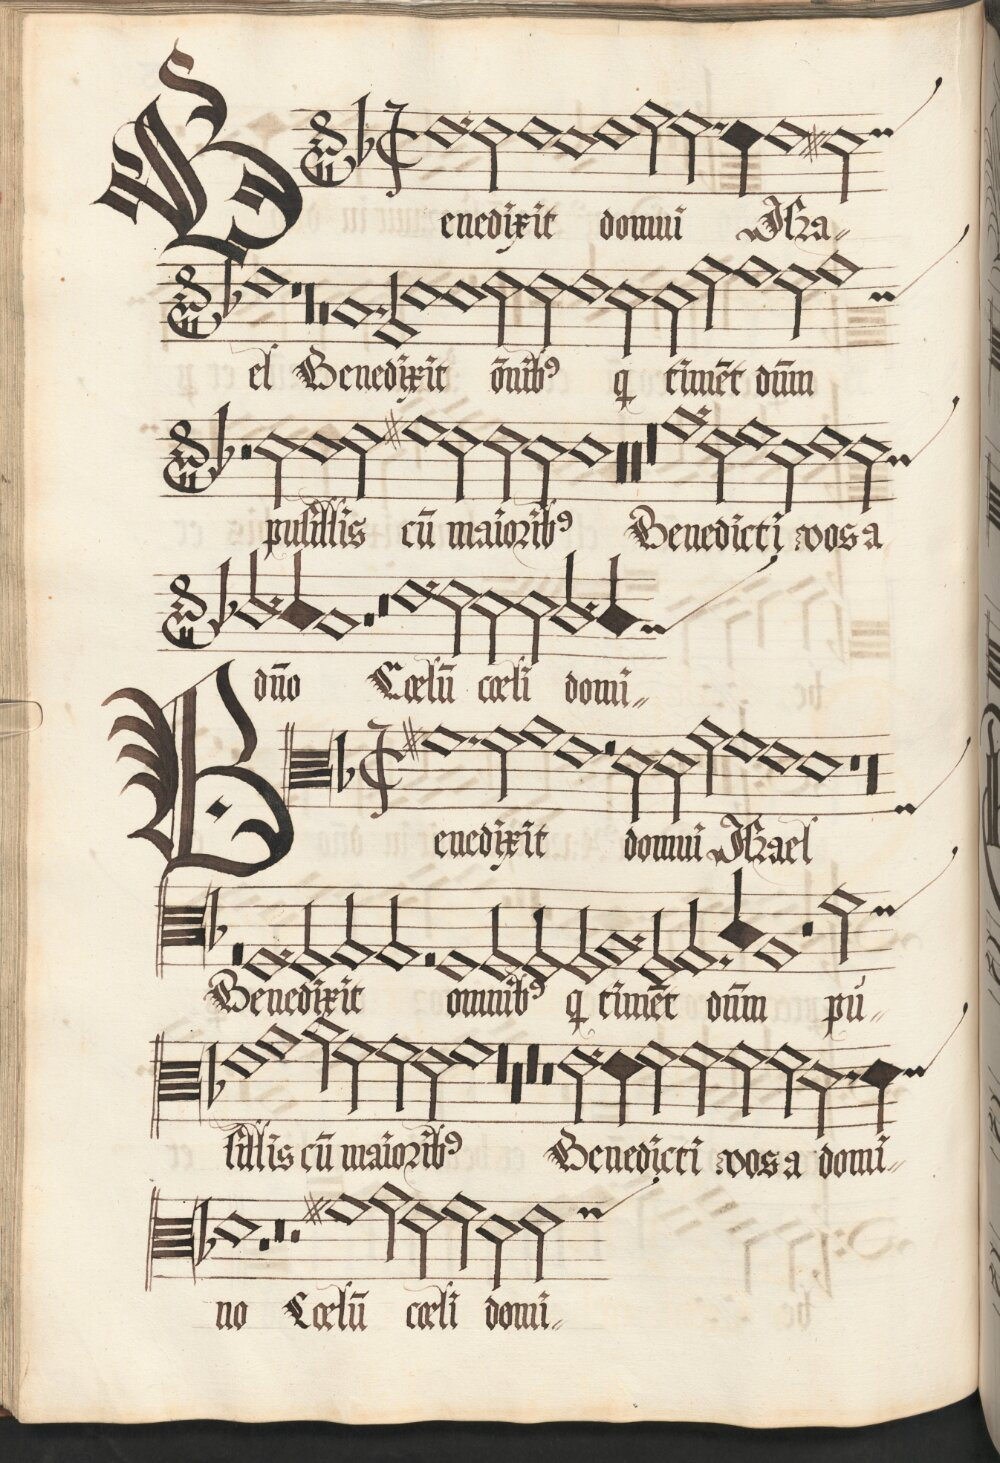 Benedixit domui Isra„
el Benedixit õnibꝰ q timẽt dñm
pusillis cũ maioribꝰ Benedicti vos a
dño Cœlũ cœli domi„
Benedixit domui Israel
Benedixit omnibꝰ q timẽt dñm pu„
sillis cũ maioribꝰ Benedicti vos a domi„
no Cœlũ cœli domi„